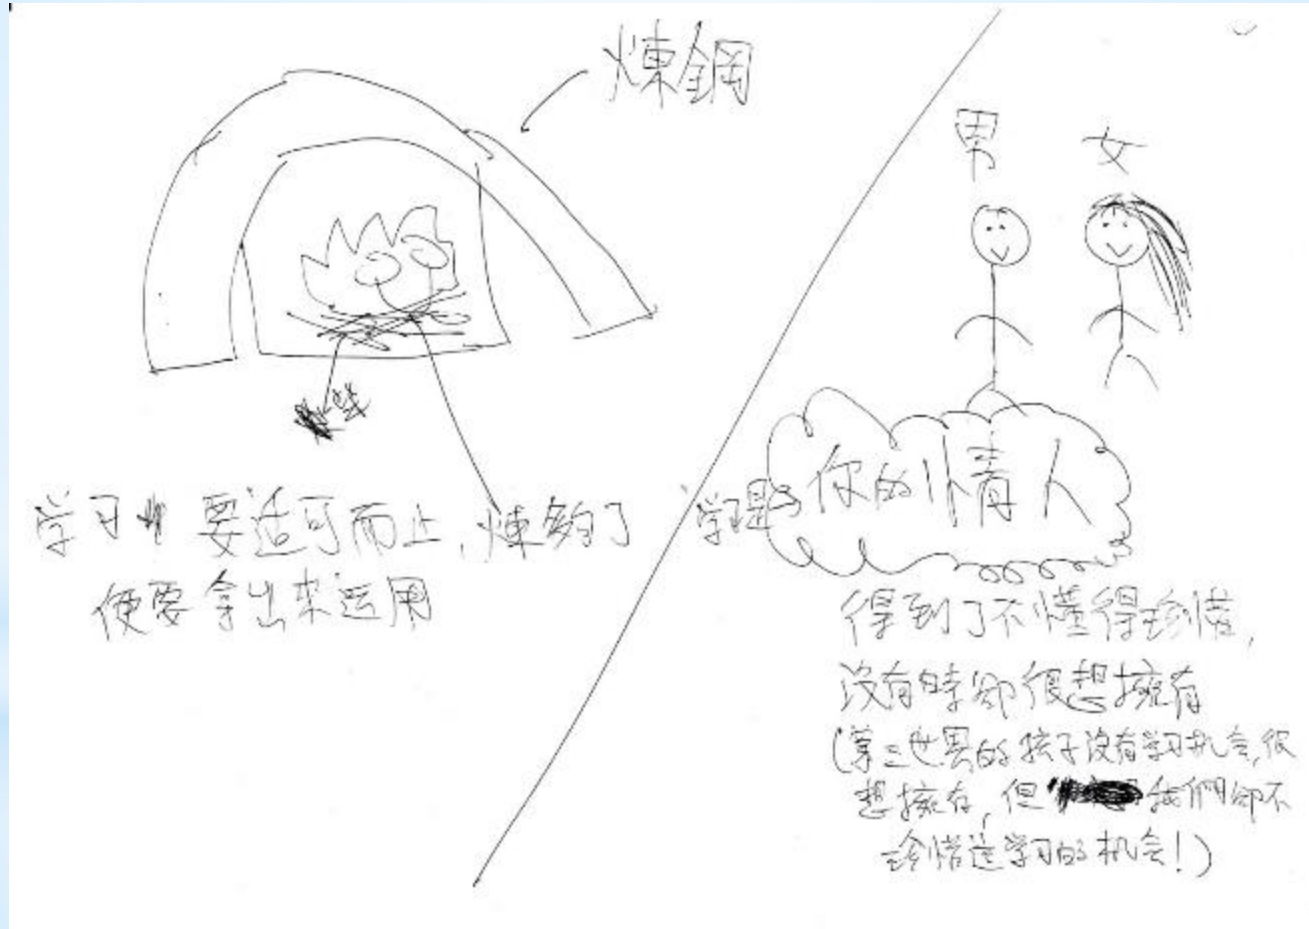 煉鋼
学习要适可而止，煉夠了
便要拿出来运用
男 女
学习是
你的情人
得到了不懂得珍惜，
沒有時卻很想擁有
(第三世界的孩子沒有学习机会，很
想擁有，但我們卻不
珍惜这学习的机会！)